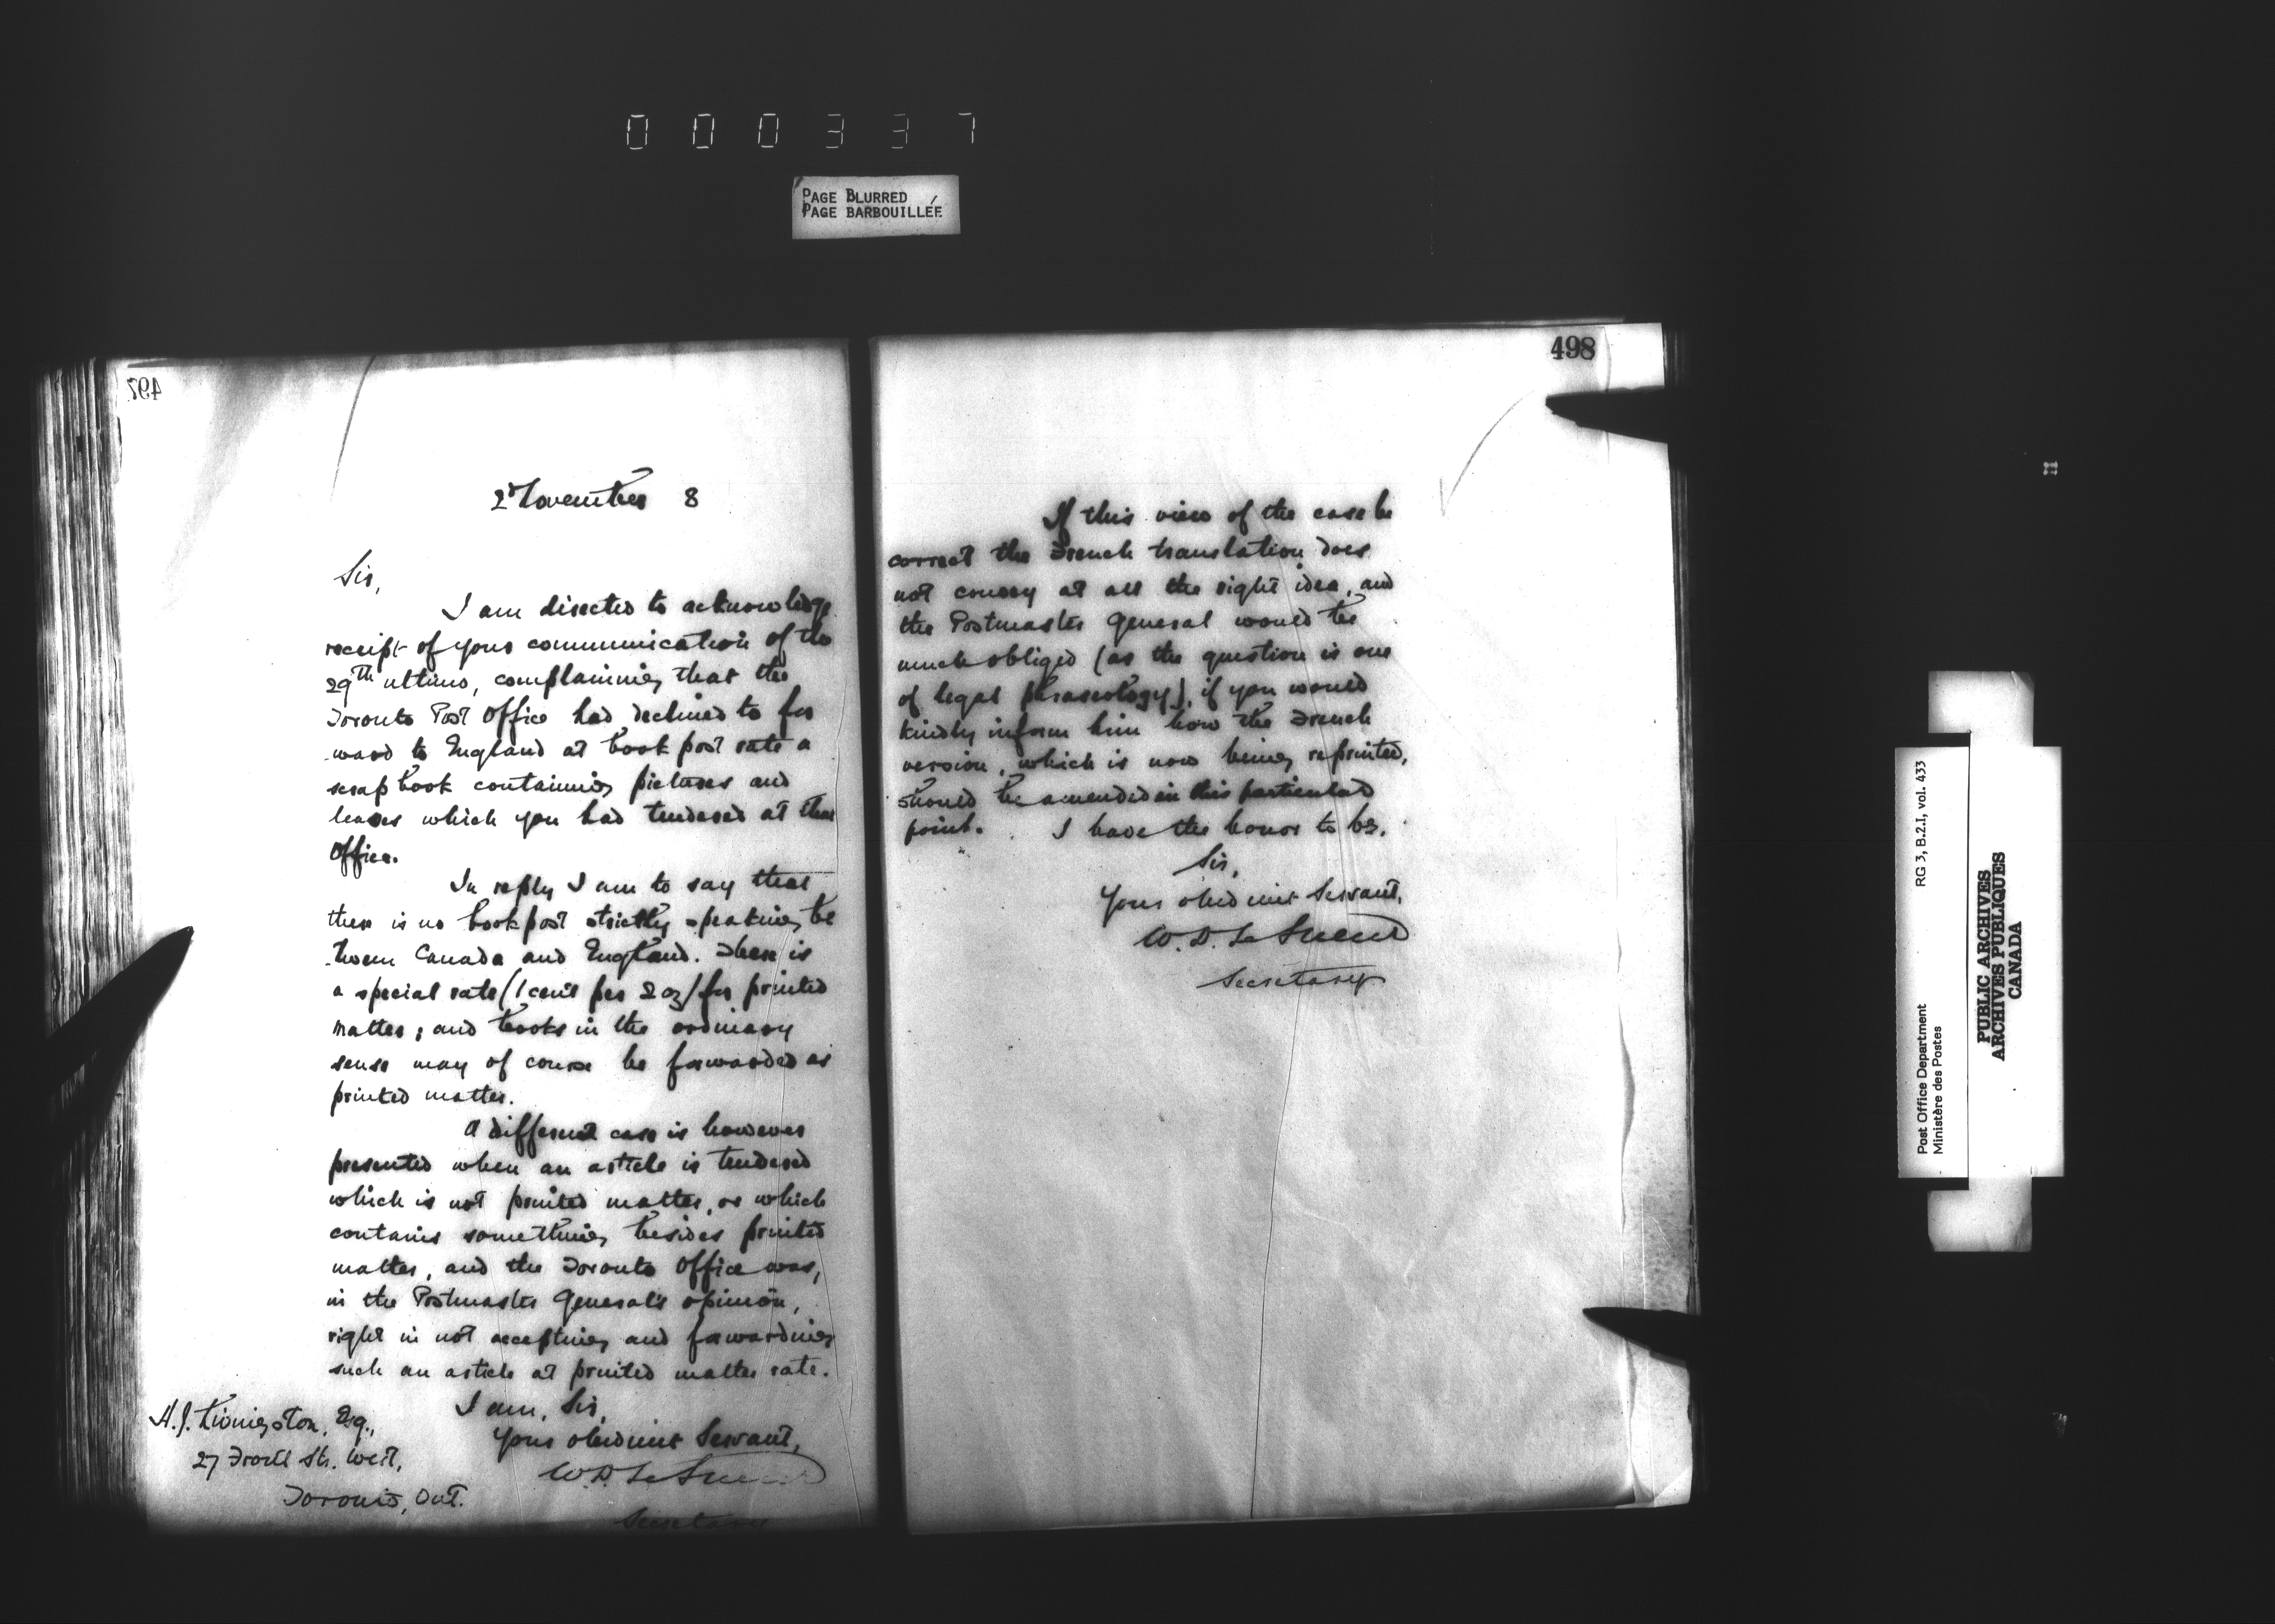 000337
PAGE BLURRED
PAGE BARBOUILLÉE
497
2 November 8
Sir,
I am directed to acknowledge
receipt of your communication of the
29th ultimo, complaining that the
Toronto Post Office had declined to for
-ward to England at book post rate a
scrap book containing pictures and
leaves which you had tendered at that
Office.
In reply I am to say that
there is no book post strictly speaking be
-tween Canada and England. There is
a special rate (1 cent per 2 oz) for printed
matter; and books in the ordinary
sense may of course be forwarded as
printed matter.
A different case is however
presented when an article is tendered
which is not printed matter, or which
contains something besides printed
matter, and the Toronto Office was,
in the Postmaster General's opinion,
right in not accepting and forwarding
such an article at printed matter rate.
I am, Sir,
Your obedient Servant,
W.D. LeSueur
Secretary
H.J. Livingston, Esq.,
27 Front Str. West,
Toronto, Ont.
498
If this view of the case be
correct the French translation does
not convey at all the right idea, and
the Postmaster General would be
much obliged (as the question is one
of legal phraseology), if you would
kindly inform him how the French
version, which is now being reprinted,
should be amended in this particular
point. I have the honor to be,
Sir,
Your obedient Servant,
W.D. LeSueur
Secretary
RG 3, B.2.I, vol. 433
Post Office Department
Ministère des Postes
PUBLIC ARCHIVES
ARCHIVES PUBLIQUES
CANADA